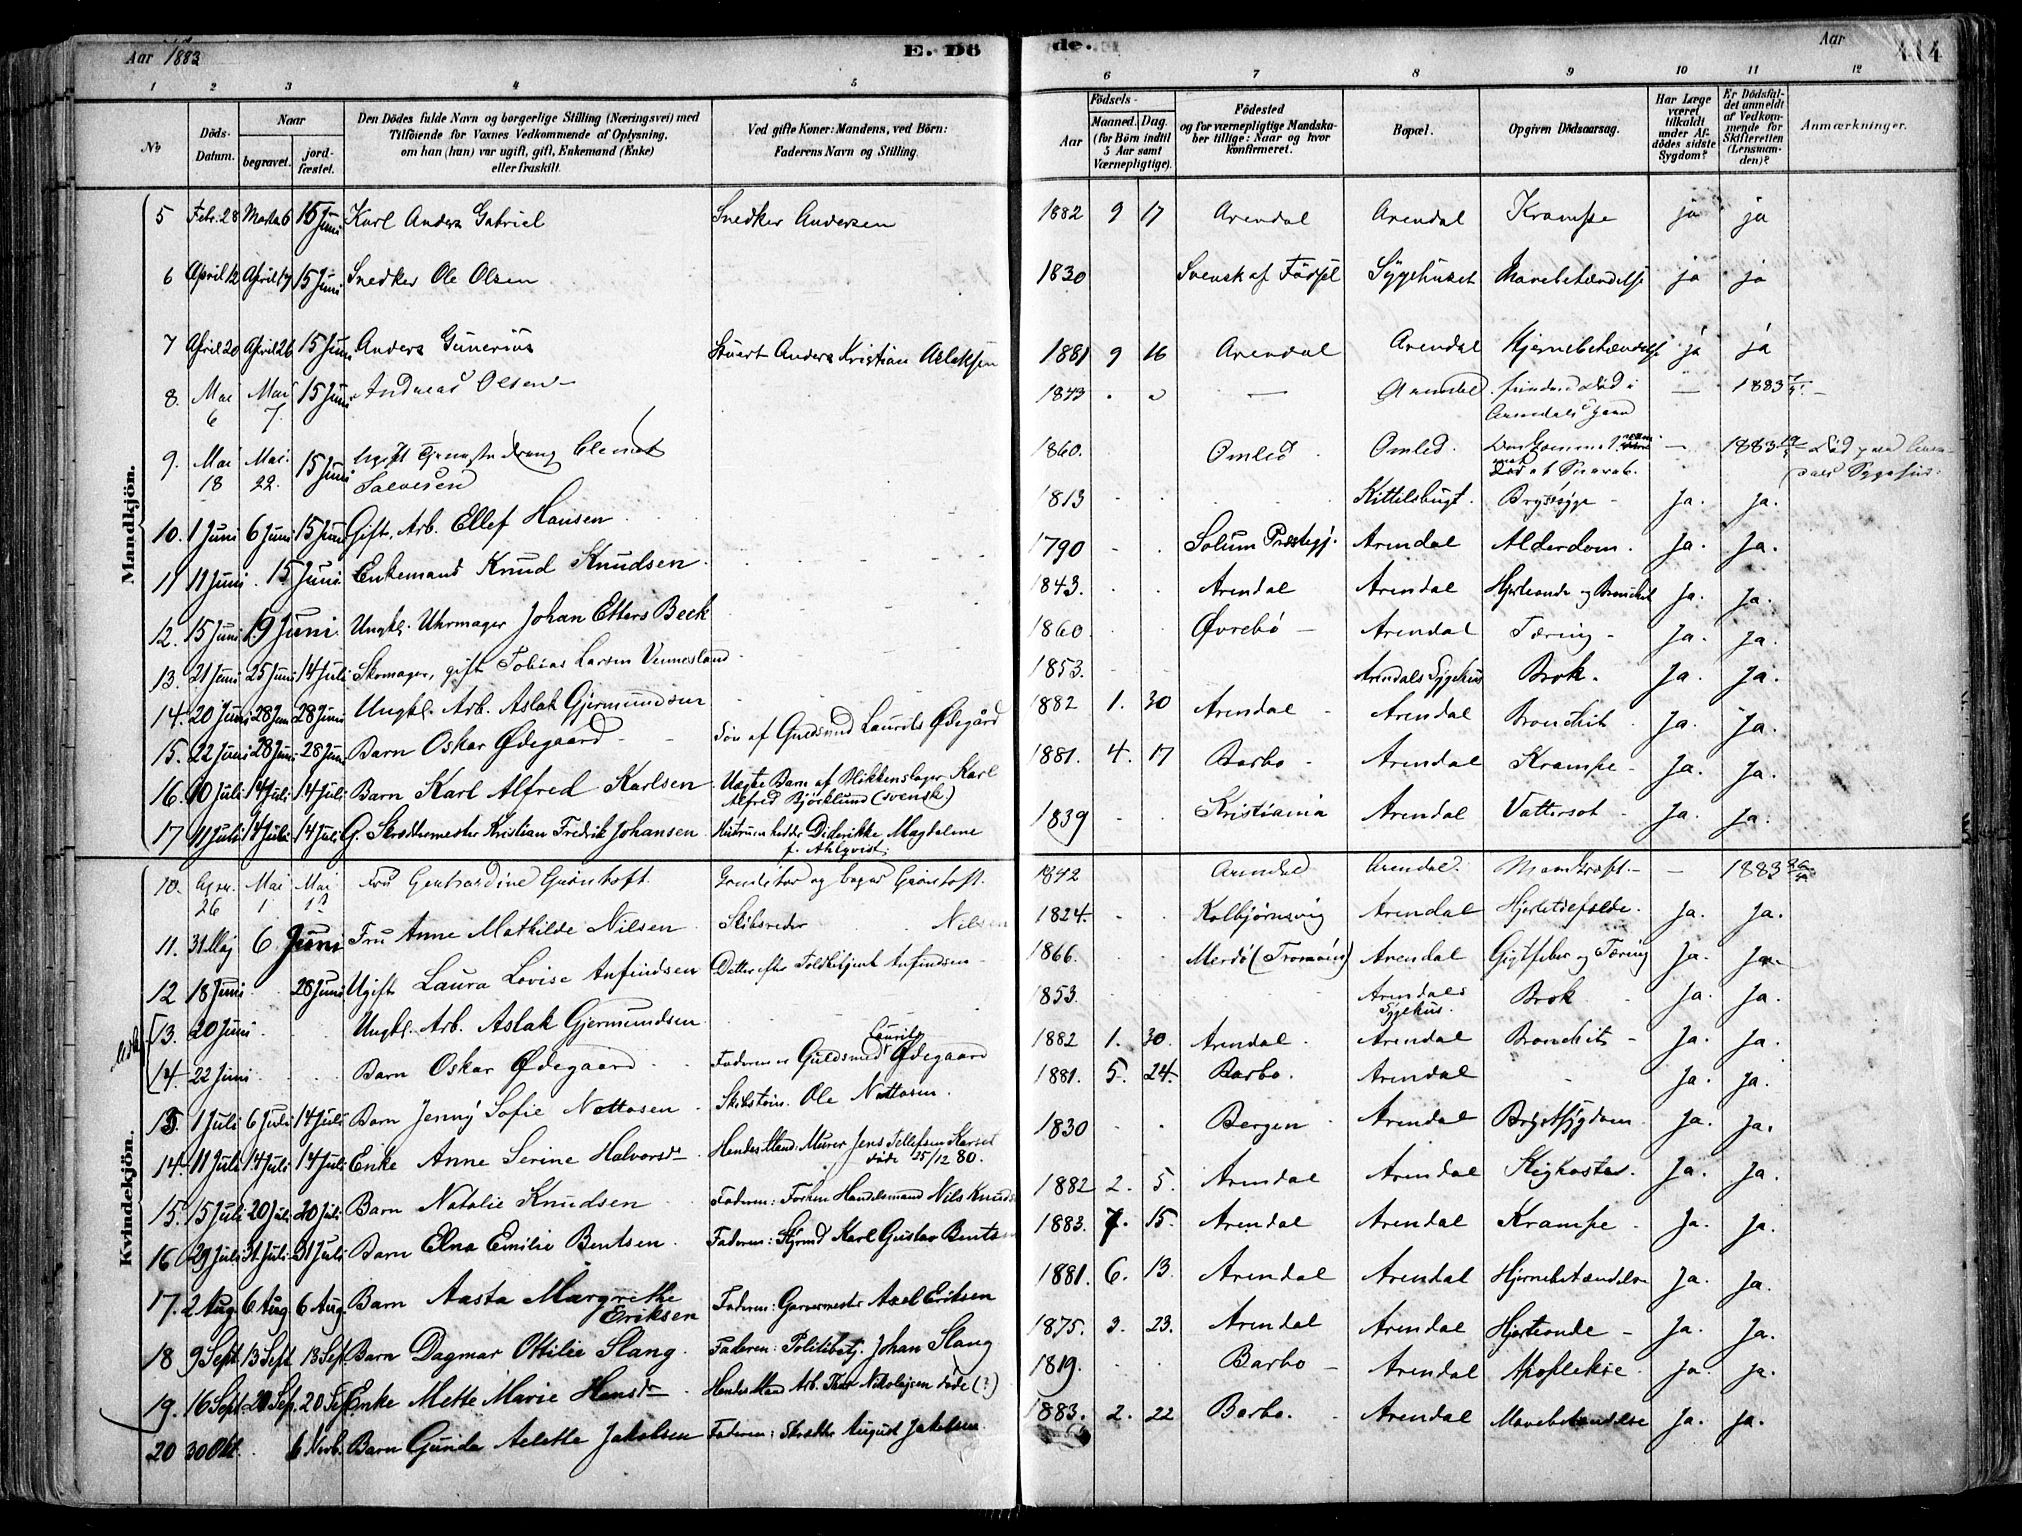 Aar 1883 E. Dö de. Aar 414
1 2 3 4 5 6 7 8 9 10 11 12
No
Döds-Datum.
Naar
begravet. jordfæstet.
Den Dödes fulde Navn og borgerlige Stilling (Næringsvei) med
Tilföiende for Voxnes Vedkommende af Oplysning,
om han (hun) var ugift, gift, Enkemand (Enke)
eller fraskilt.
Ved gifte Koner: Mandens, ved Börn:
Faderens Navn og Stilling.
Födsels-
Aar Maaned. Dag.
(for Börn indtil 5 Aar samt Værnepligtige).
Födested
og for værnepligtige Mandskaber tillige: Naar og hvor konfirmeret.
Bopæl.
Opgiven Dödsaarsag.
Har Læge været tilkaldt under Afdödes sidste Sygdom?
Er Dödsfaldet anmeldt af Vedkommende for Skifteretten (Lensmanden)?
Anmærkninger.
Mandkjön.
5 Febr. 28 Marts 6 15 Juni Karl Anders Gabriel Snedker Andersen 1882 9 17 Arendal Arendal Krampe ja ja
6 April 12 April 17 15 Juni Snedker Ole Olsen 1830 Svensk af Födsel Sygehuset Mavebetændelse ja ja
7 April 20 April 26 15 Juni Anders Gunerius Stuert Anders Kristian Aslaksen 1881 9 16 Arendal Arendal Hjernebetændelse ja ja
8. Mai 6 Mai 7. 15 Juni Andreas Olsen 1843 — Arendal funden död i Arendals — 1883
9. Mai 18 Mai 22. 15 Juni Ugift Salvesen 1860. Omled Omled. — 1883 Död paa Arendals Sygehus.
10. 1 Juni 6 Juni 15 Juni Gift, Arb. Ellef Hansen 1813 Kittelsbugt. Brystsyge Ja. Ja.
11 11 Juni 15 Juni Enkemand Knud Knudsen 1790 Solum Præstegj. Arendal Alderdom. Ja. Ja.
12. 15 Juni 19 Juni Ungkl. Uhrmager Johan Ellers Beck 1843. Arendal Arendal Hjerteonde og Bronchit Ja. Ja.
13. 21 Juni 25 Juni 14 Juli Skomager, gift Tobias Larsen Vennesland 1860 Øvrebö Arendal Tæring Ja. Ja.
14. 20 Juni 28 Juni 28 Juni Ungkl. Arb. Aslak Gjermundsen 1853. Arendals Sygehus Brok. Ja. Ja.
15. 22 Juni 28 Juni 28 Juni Barn Oskar Ødegaard Sön af Guldsmed Laurits Ødegård 1882 1. 30 Arendal Arendal Bronchit Ja. Ja.
16. 10 Juli 14 Juli 14 Juli Barn Karl Alfred Karlsen Uægte Barn af Blikkenslager Karl Alfred Björklund (svensk.) 1881. 4. 17 Barbo Arendal Krampe Ja. Ja.
17 11 Juli 14 Juli 14 Juli G. Skreddermester Kristian Fredrik Johansen Hustruen hedder Diderikke Magdalene f. Ahlqvist. 1839 Kristiania Arendal Vattersot Ja. Ja.
Kvindekjön.
10. April 26 Mai 1 Mai Fru Gerhardine Gröntoft. 1842 Arendal Arendal. — 1883 26/4
11. 31 Maj 6 Juni Fru Anne Mathilde Nilsen Skibsreder Nilsen 1824 Kolbjörnsvig Arendal Hjertetilfælde. Ja. Ja.
12 18 Juni 28 Juni Ugift Laura Lovise Anfindsen Datter efter Toldbetjent Anfindsen 1866. Merdö (Tromöen) Arendal Gigtfeber og Tæring Ja. Ja.
13. 20 Juni Ungkl. Arb. Aslak Gjermundsen 1853. Arendals Sygehus. Brok Ja. Ja.
14. 22 Juni Barn Oskar Ødegaard Faderen er Guldsmed Laurits Ødegaard 1882 1. 30. Arendal. Arendal Bronchit Ja. Ja.
13. 1 Juli 6 Juli 14 Juli Barn Jenny Sofie Nottosen Skibstöm. Ole Nottosen. 1881. 5. 24. Barbo. Arendal Ja. Ja.
14. 11 Juli 14 Juli 14 Juli Enke Anne Serine Halvorsdr Hendes Mand: Murer Jens Tellefsen döde 25/12 80. 1830 Bergen Arendal Brystsygdom Ja. Ja.
15. 15 Juli 20 Juli 20 Juli Barn Natalie Knudsen Faderen: Forhen Handelsmand Nils Knudsen 1882 2. 5. Arendal Arendal Kighoste. Ja. Ja.
16 29 Juli 31 Juli 31 Juli Barn Elna Emilie Bentsen. Faderen: Styrmd Karl Gustav Bentsen 1883. 7. 15. Arendal Arendal Krampe Ja. Ja.
17. 2 Aug 6 Aug 6 Aug. Barn Aasta Margrethe Eriksen Faderen: Garvermester Axel Eriksen 1881. 6. 13. Arendal Arendal Hjernebetændelse Ja. Ja.
18 9 Sept 13 Sept 13 Sept. Barn Dagmar Ottilie Slang. Faderen: Politibetj. Johan Slang 1875. 3. 23. Arendal Arendal Hjerteonde Ja. Ja.
19. 16 Sept 20 Sep. 20 Sept Enke Mette Marie Hansdr Hendes Mand Arb. Thor Nikolajsen döde (?) 1819. Barbo Arendal Apoplekse Ja. Ja.
20 30 Okt. 6 Novb. Barn Gunda Aletta Jakobsen Faderen: Skrædder August Jakobsen. 1883. 2. 22 Barbo. Arendal Mavebetændelse Ja. Ja.